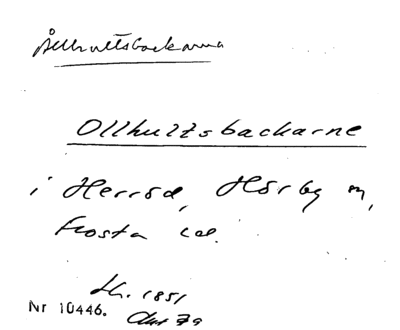 Ållhultsbackarna
Ollhultsbackarne
i Herröd, Hörby sn,
Frosta hd.
Lk. 1851
Nr 10446. Akt 79